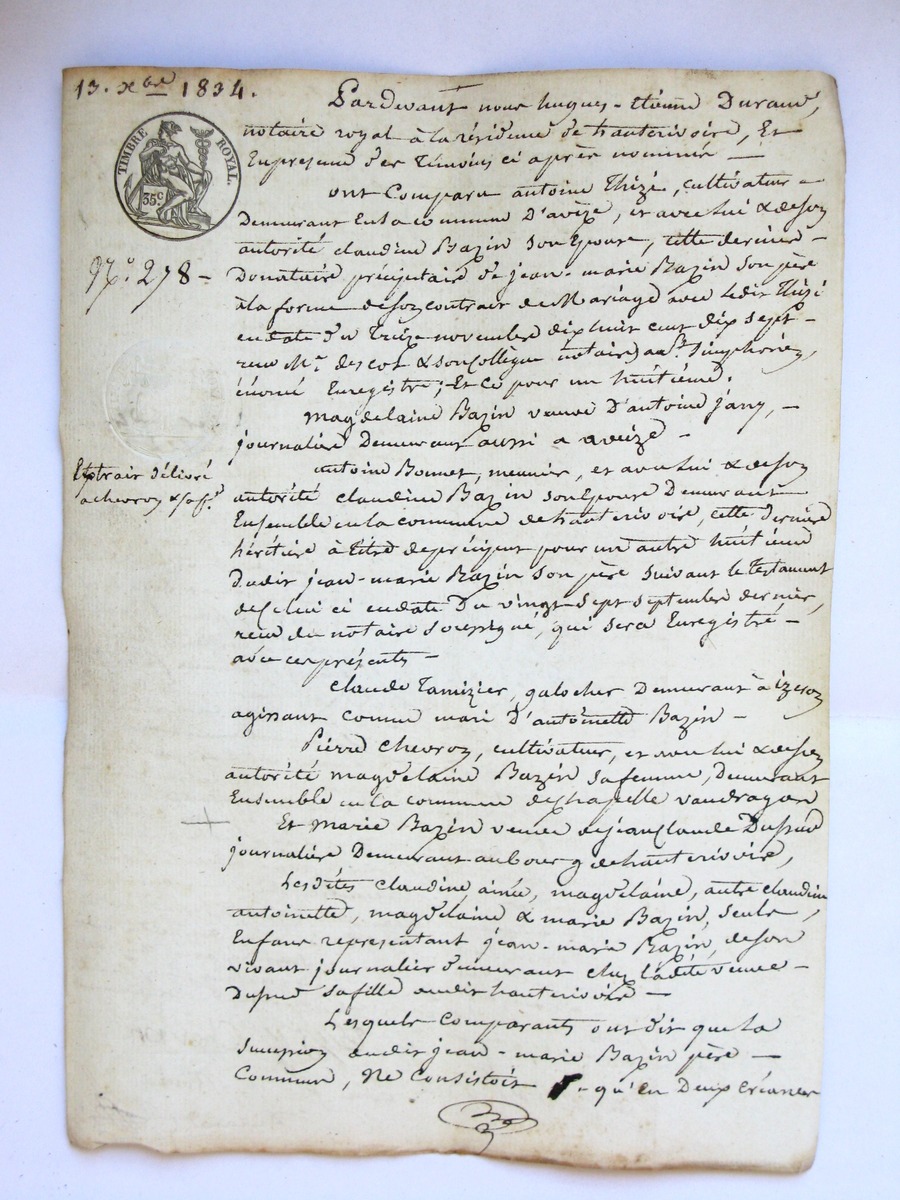 13. xbre 1834.
TIMBRE ROYAL.
35c
N.o 278 -
Extrait délivré
a chevron & sa fe
Pardevant nous hugues-Etienne Durand,
notaire royal à la résidence de hauterivoire, Et
En presence des Temoins ci après nommés —
ont Comparu antoine Thizé, cultivateur -
Demeurant En la commune D'aveize, et avec lui & de son
autorité claudine Bazin son Epouse, cette derniere -
Donataire précipitaire de jean-marie Bazin son père
à la forme de son contrat de Mariage avec ledit Thizé
en date du Treize novembre dix huit cent dix sept -
reçu Me descot & son Collègue notaires a St Simphorien,
Enregistré; Et ce pour un huitième.
magdelaine Bazin veuve D'antoine jany, -
journalière Demeurant aussi a aveize -
antoine Bonnet, meunier, et avec lui & de son
autorité claudine Bazin son Epouse Demeurant
Ensemble en la commune de hauterivoire, cette derniere
héritière à titre de préciput pour un autre huitième
Dudit jean-marie Bazin son père suivant le testament
de Celui ci en date Du vingt sept septembre dernier,
reçu du notaire soussigné, qui sera Enregistré -
avec ces présents -
Claude Tamizier, galocher Demeurant à izeron
agissant comme mari D'antoinette Bazin -
Pierre Chevron, cultivateur, et avec lui & de son
autorité magdelaine Bazin sa femme, Demeurant
Ensemble en la commune de Chapelle vaudragon
Et marie Bazin veuve de jean Claude Dupud
journalière Demeurant au bourg de hauterivoire,
Lesdites claudine ainée, magdelaine, autre claudine
antoinette, magdelaine & marie Bazin, seuls,
Enfans representant jean-marie Bazin, de son
vivant journalier demeurant chez ladite veuve -
Dupud sa fille audit hauterivoire -
Lesquels comparants ont dit que la
succession dudit jean-marie Bazin père -
Commun, Ne Consistoit - qu'en Deux créances